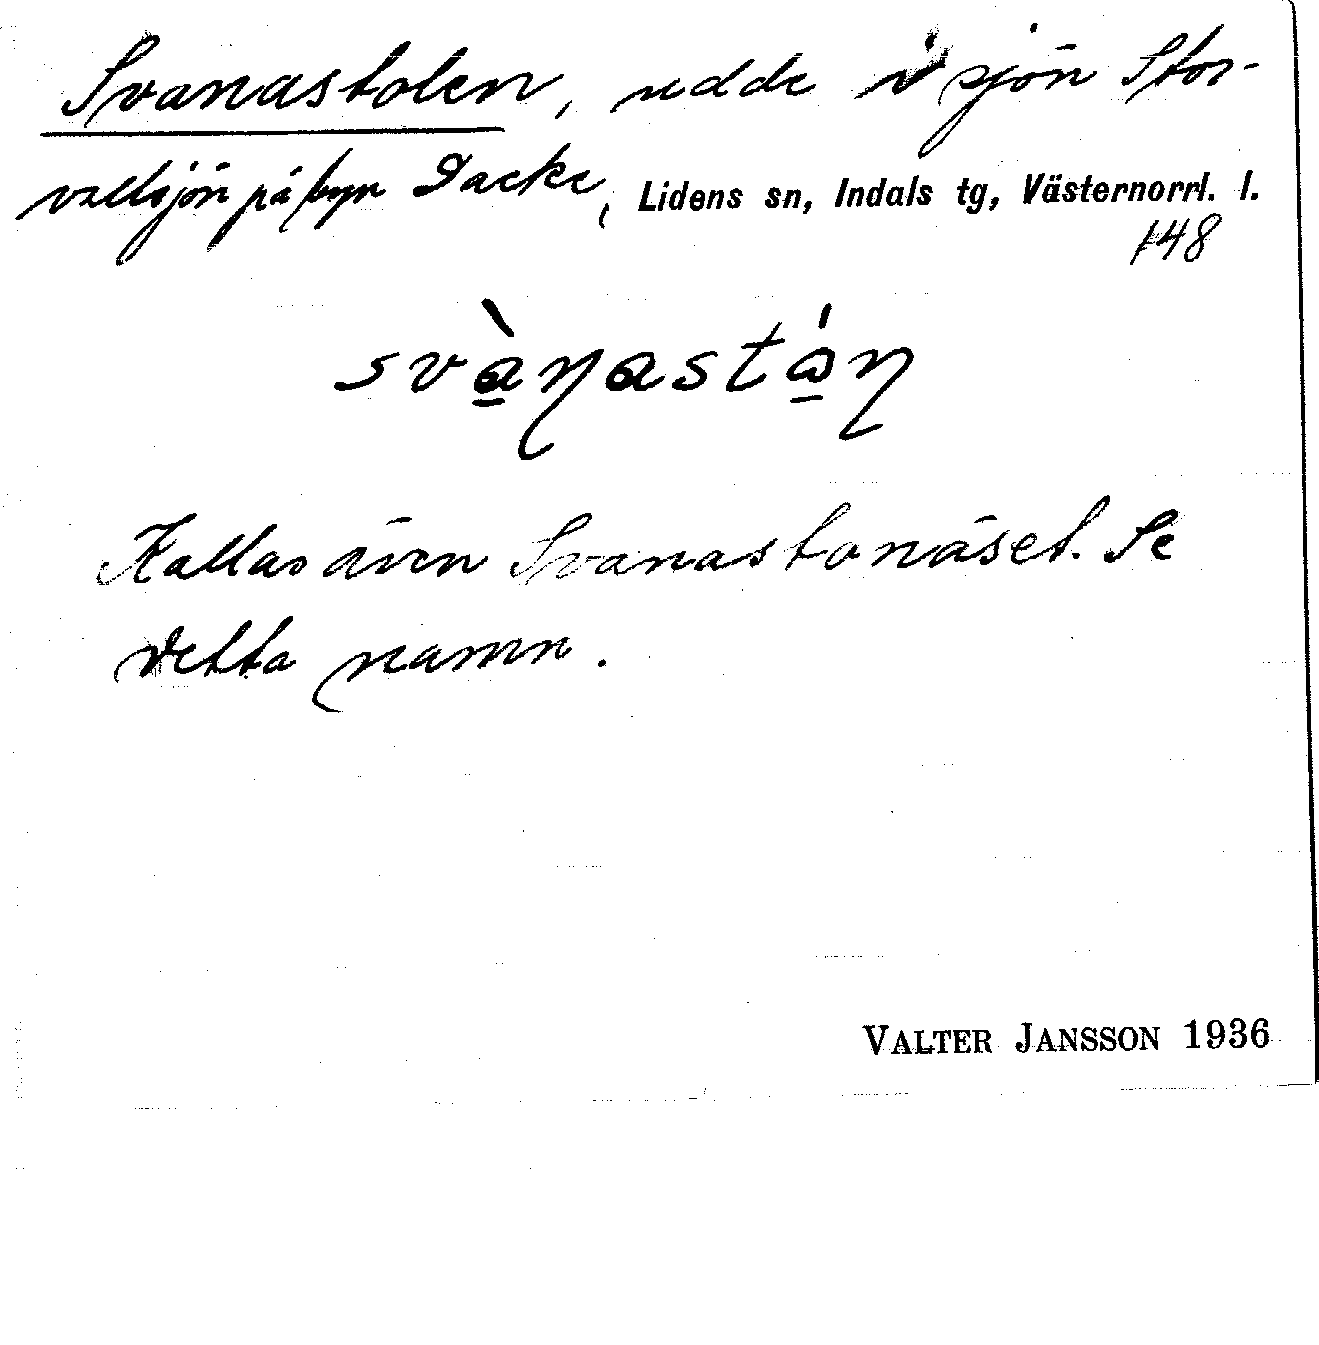 Svanastolen, udde i sjön Stor-
vallsjön på byn Dacke, Lidens sn, Indals tg, Västernorrl. l.
148
Kallas även Svanastonäset. Se
detta namn.
VALTER JANSSON 1936